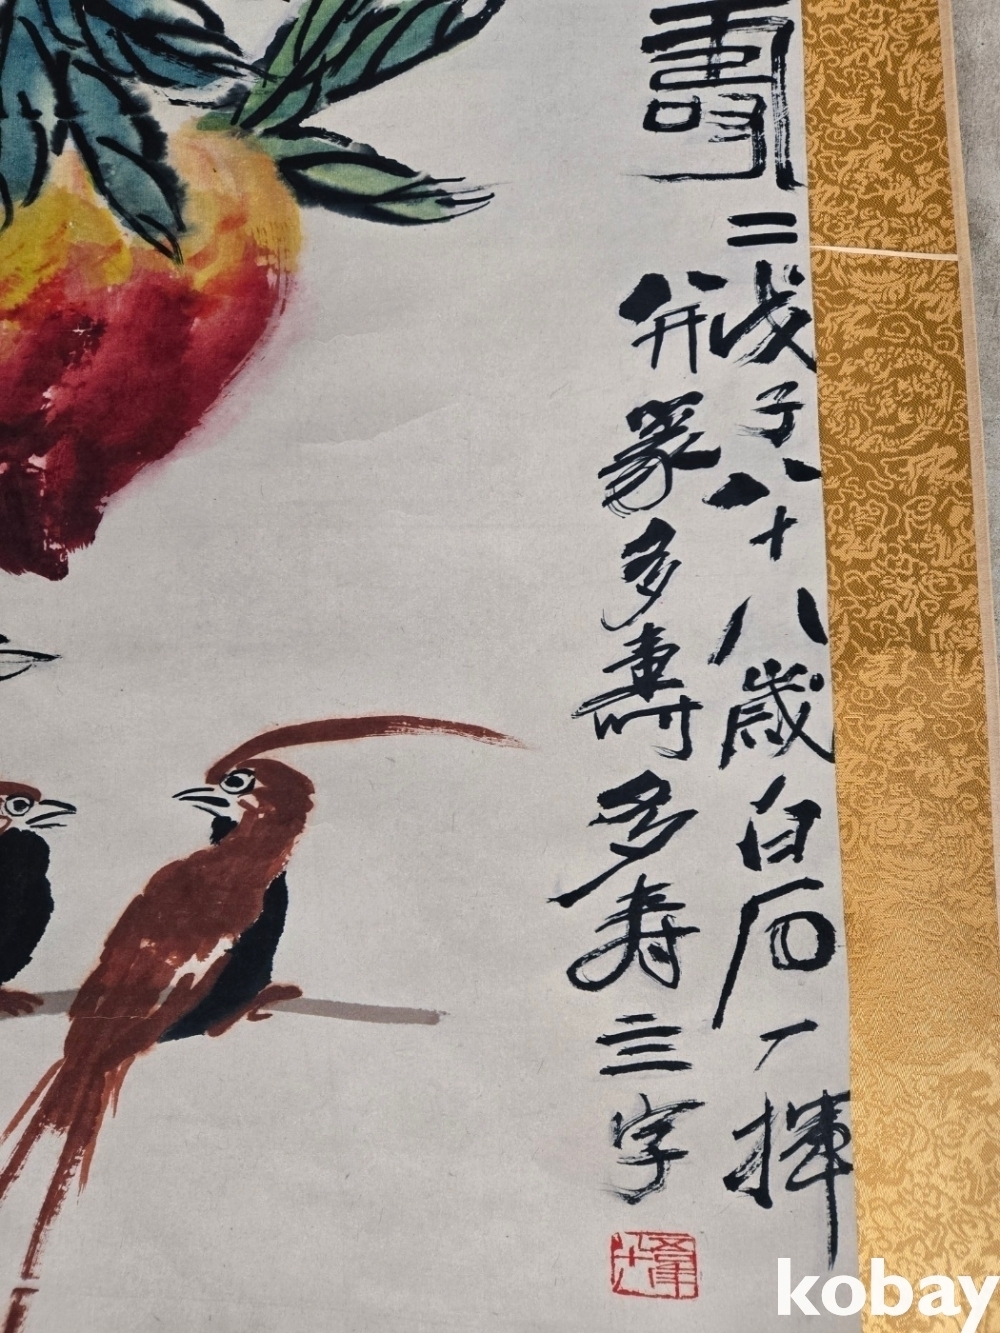 壽
二
戊子八十八歲白石一揮
并篆多壽多寿三字
kobay